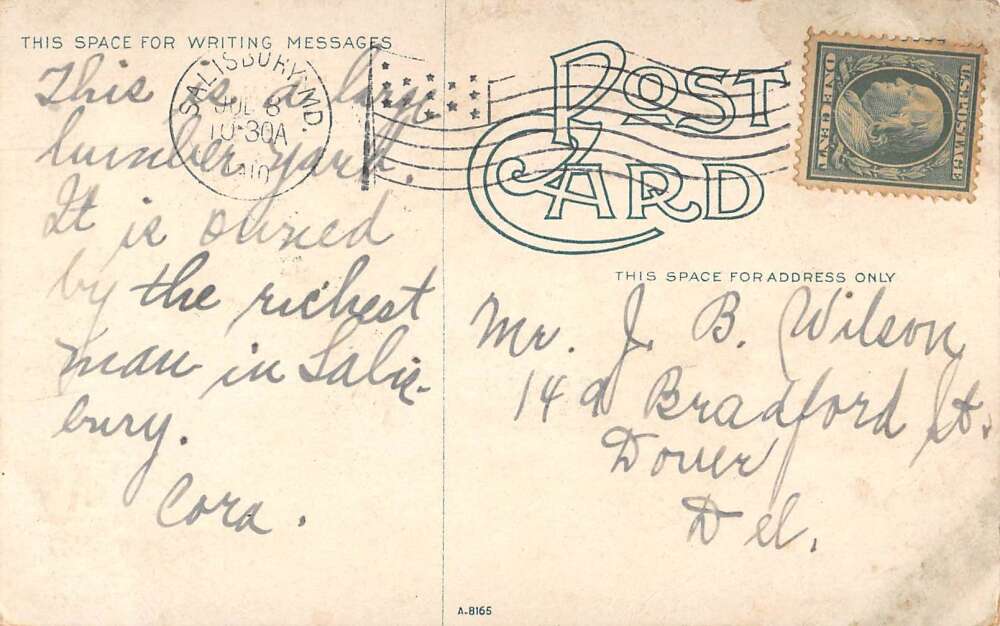 THIS SPACE FOR WRITING MESSAGES
This is a large
lumber yard.
It is owned
by the richest
man in Salis-
bury.
Cora.
SALISBURY, MD.
JUL 8
10-30A
1910
POST CARD
U.S. POSTAGE
ONE CENT
THIS SPACE FOR ADDRESS ONLY
Mr. J. B. Wilson
Bradford St.
Dover
Del.
A-8165